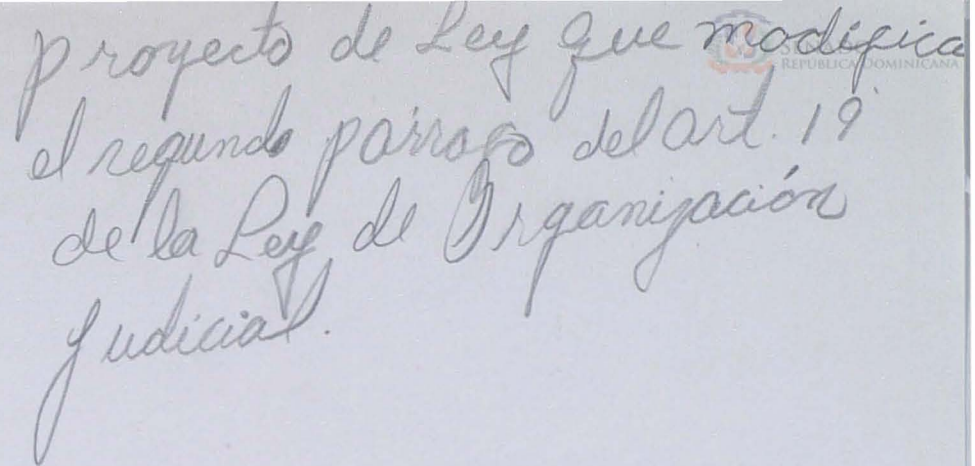 proyecto de Ley que modifica
el segundo párrafo del art. 19
de la Ley de Organización
Judicial.
SENADO
REPÚBLICA DOMINICANA